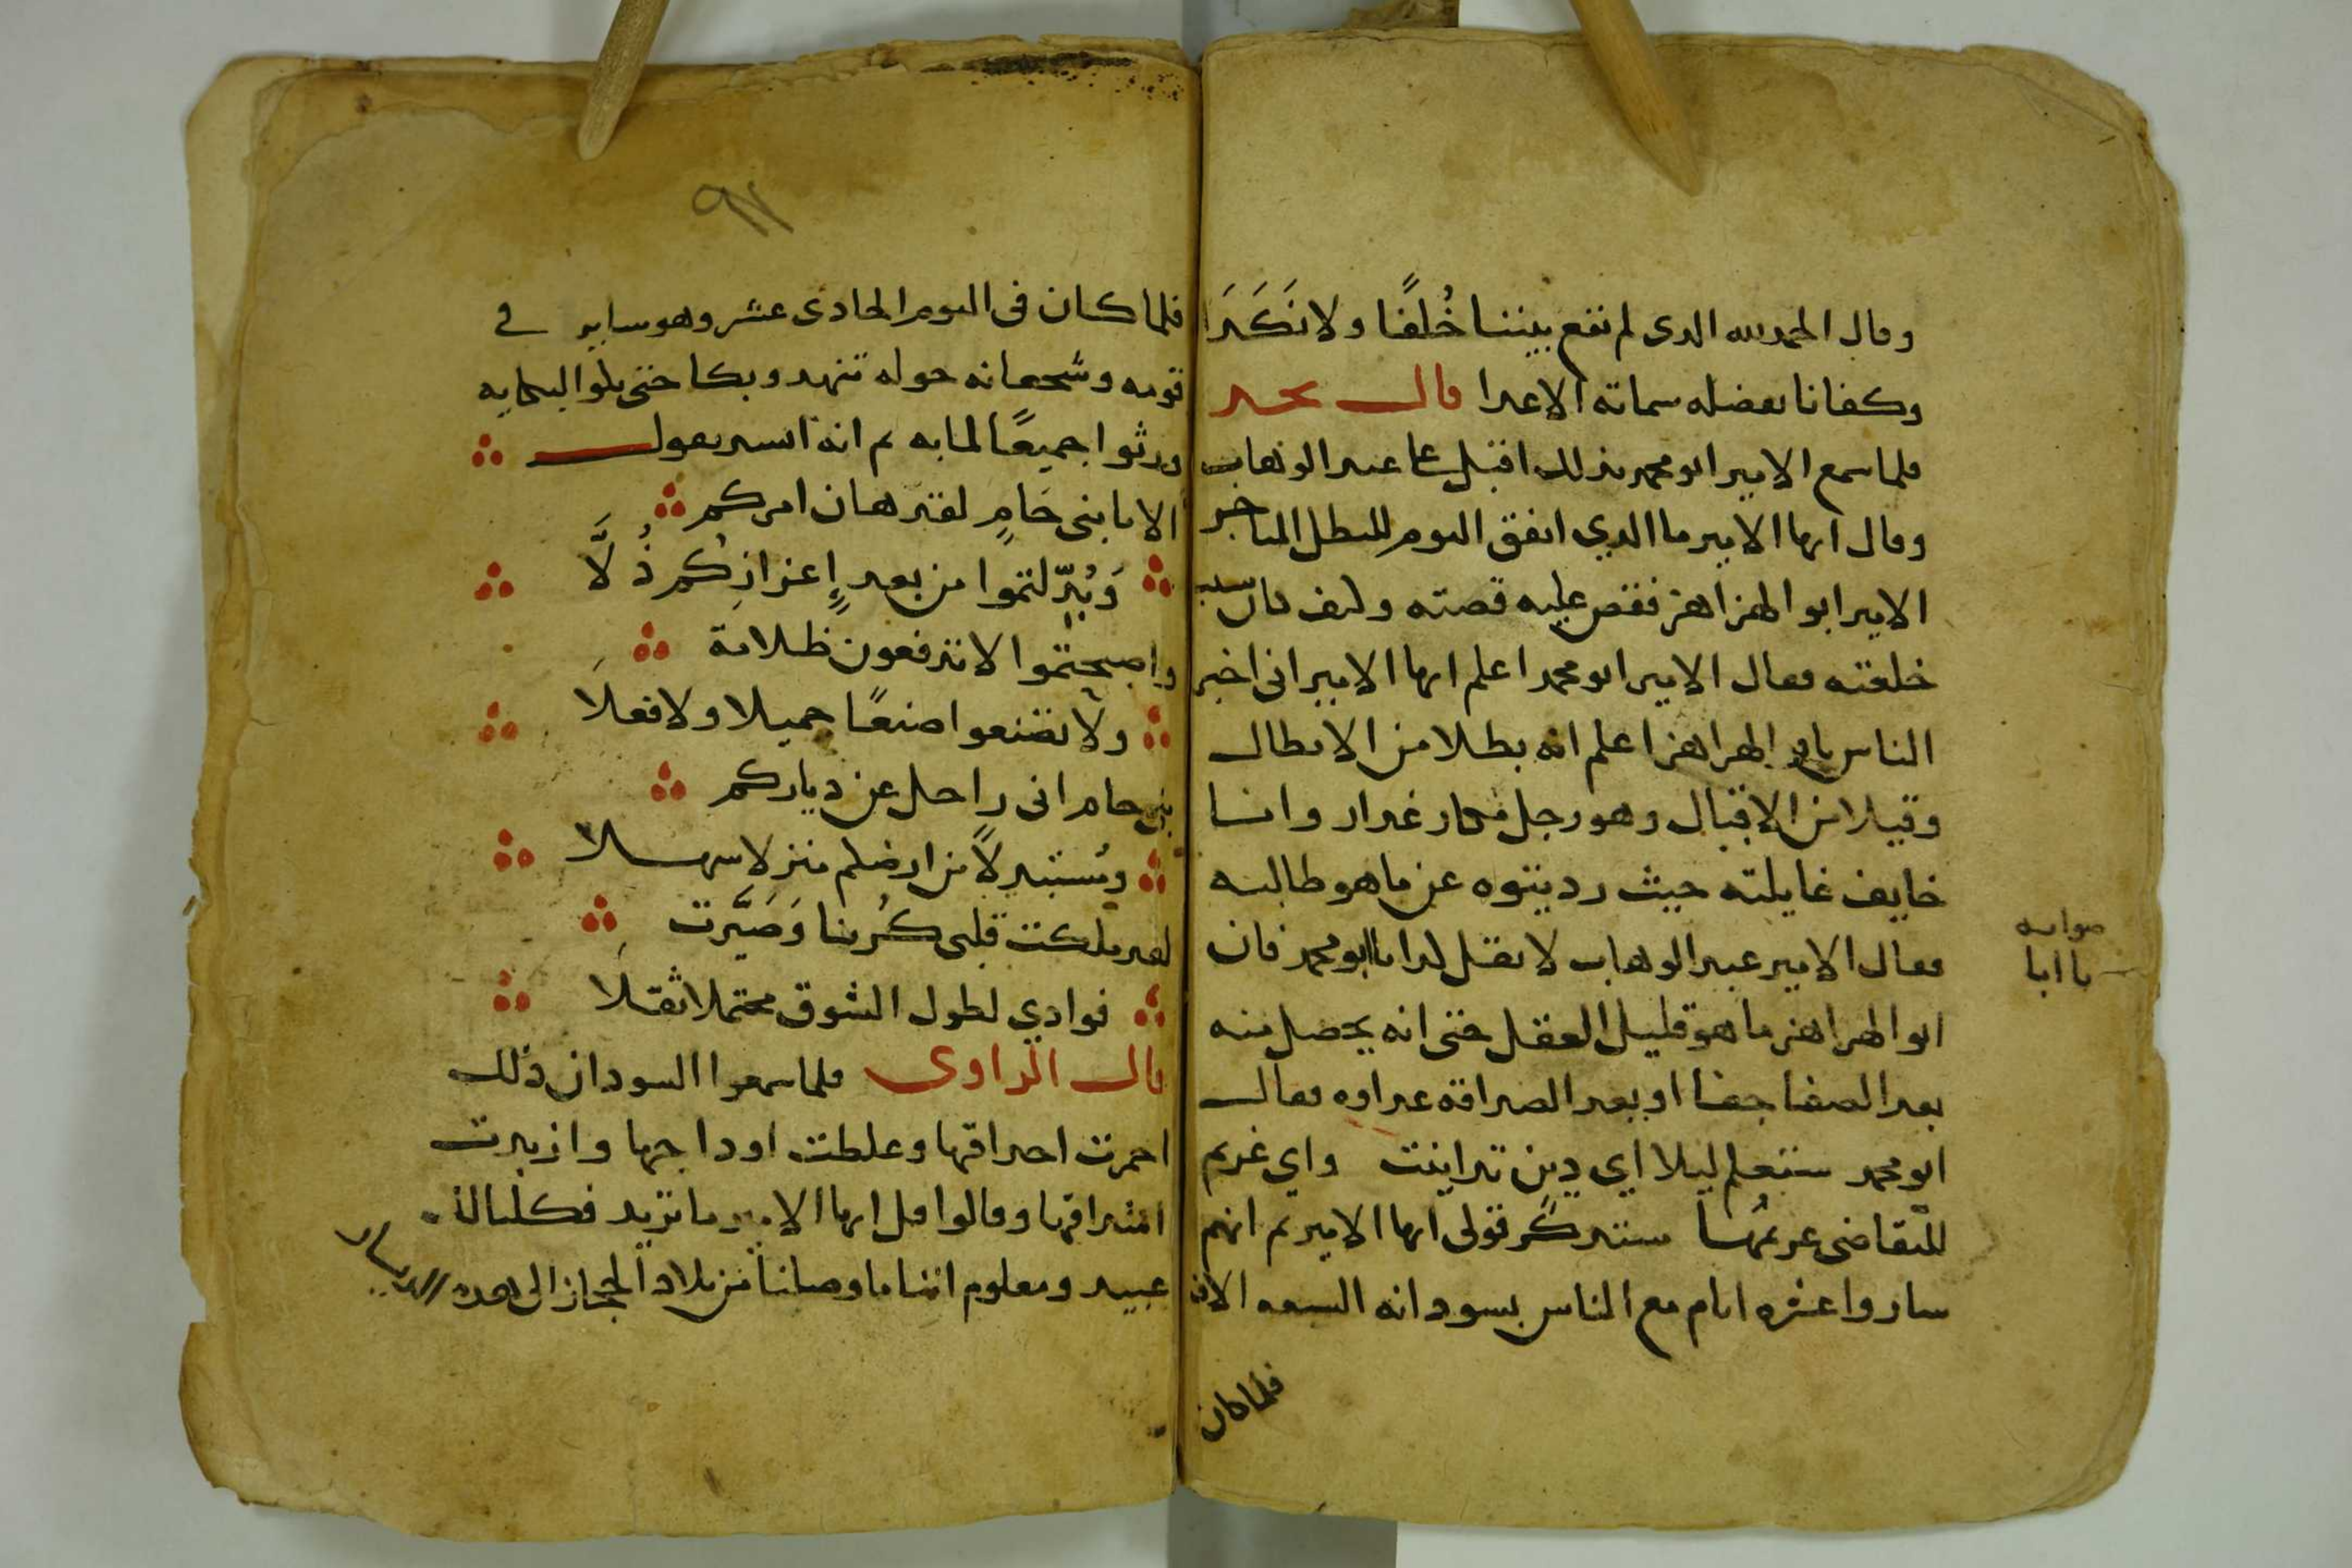 وقال الحمد لله الدى لم نقع بيننا خُلفًا ولا نَكَدَا
وكفانا بفضله سماتة الاعدا قال نجد
فلما سمع الامير ابو محمد بذلك اقبل على عبد الوهاب
وقال ايها الامير ما الدي اتفق اليوم للبطل الماخر
الامير ابو الهزاهز فقص عليه قصته وكيف كان سبب
خلفته فقال الامير ابو محمد اعلم ايها الامير انى اخبر
الناس بابو الهزاهز اعلم انه بطلا من الابطال
وقيلا من الاقيال وهو رجل مكار غدار وانا
خايف غايلته حيث رديتوه عن ما هو طالبه
فقال الامير عبد الوهاب لا تقل كدا يا ابو محمد فان
صوابه
يا ابا
ابو الهزاهز ما هو قليل العقل حتى انه يحصل منه
بعد الصفا جفا او بعد الصداقه عداوه فقال
ابو محمد ستعلم ليلا اي دين تداينت واي غريم
للتقاضى غريمها ستدكر قولى ايها الامير ثم انهم
ساروا عشره ايام مع الناس بسودانه السبعه الاف
فلما كان
٩٢
فلما كان فى اليوم الحادى عشر وهو ساير في
قومه وشجعانه حوله تنهد وبكا حتى بلوا البكايه
ورثوا جميعًا لما به ثم انه انشد يقول
الا يا بنى حَامٍ لقد هان امركم
وَبُدّلتموا من بعد إِعزازِكُم ذُلَّا
واصبحتموا لا تدفعون ظلامة
ولا تصنعوا صنعًا جميلا ولا فعلَا
بنى حام انى راحل عن دياركم
ومُستبدلًا من ارضكم منزلا سهلا
لقد ملكت قلبى كُربنا وَصَيَّرت
فوادي لطول الشوق محتملا ثقلَا
قال الراوى فلما سمعوا السودان ذلك
احمرت احداقها وغلظت اوداجها وازبدت
اشداقها وقالوا قل ايها الامير ما تريد فكلنا لك
عبيد ومعلوم اننا ما وصلنا من بلاد الحجاز الى هده الديار